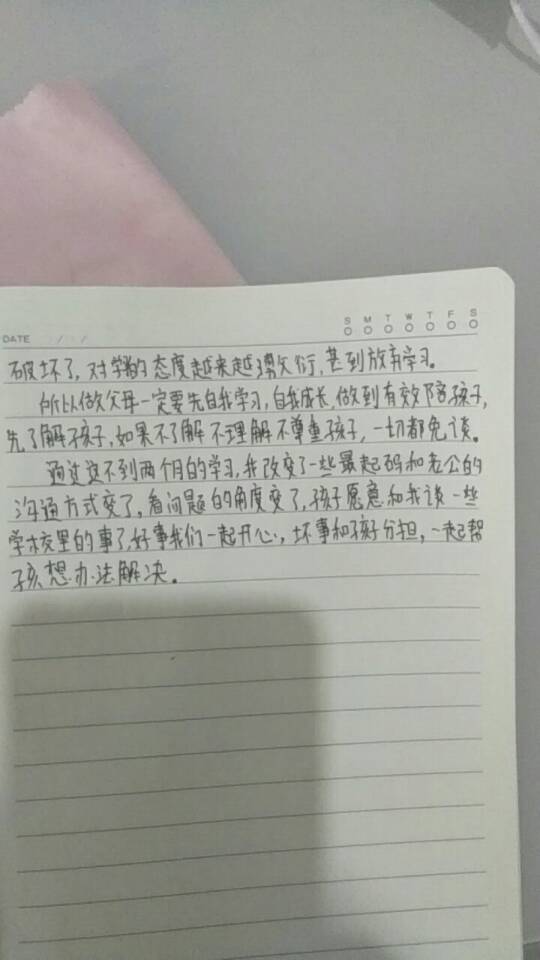 S M T W T F S
DATE / /
破坏了，对学的态度越来越敷衍，甚到放弃学习。
所以做父母一定要先自我学习，自我成长，做到有效陪孩子，
先了解孩子，如果不了解不理解不尊重孩子，一切都免谈。
通过这不到两个月的学习，我改变了一些最起码和老公的
沟通方式变了，看问题的角度变了，孩子愿意和我谈一些
学校里的事了，好事我们一起开心，坏事和孩子分担，一起帮
孩想办法解决。